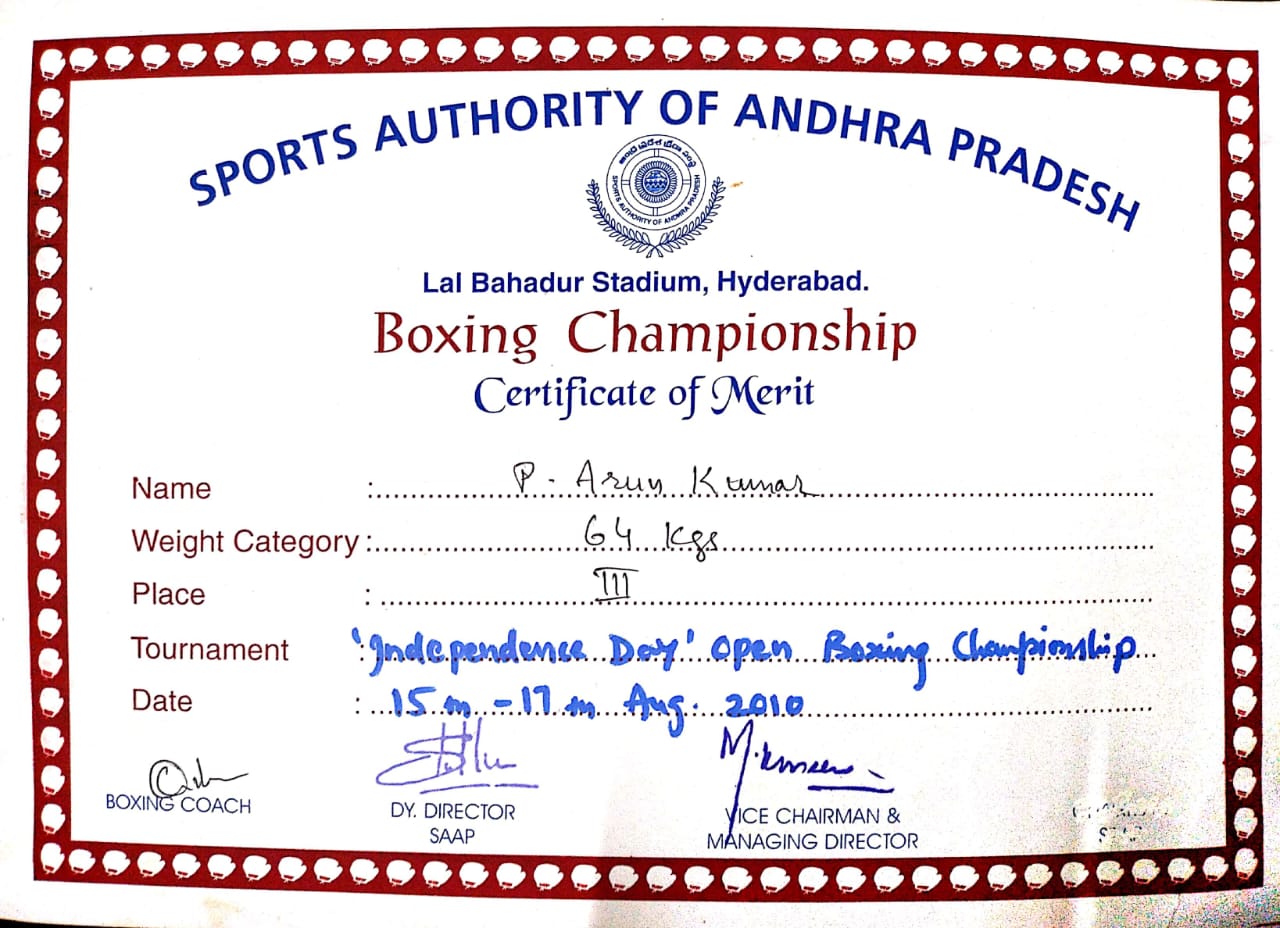 SPORTS AUTHORITY OF ANDHRA PRADESH
SPORTS AUTHORITY OF ANDHRA PRADESH
Lal Bahadur Stadium, Hyderabad.
Boxing Championship
Certificate of Merit
Name : P. Arun Kumar
Weight Category : 64 Kgs
Place : III
Tournament : 'Independence Day' open Boxing Championship
Date : 15 th - 17 th Aug. 2010
BOXING COACH
DY. DIRECTOR
SAAP
VICE CHAIRMAN &
MANAGING DIRECTOR